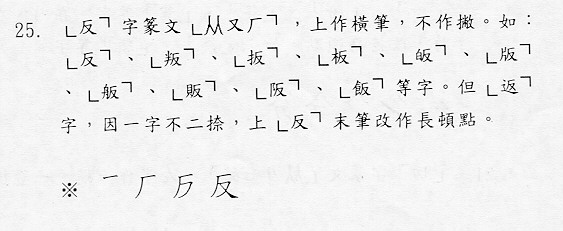 25. ﹂反﹁字篆文﹂从又厂﹁,上作橫筆,不作撇。如:
﹂反﹁、﹂叛﹁、﹂扳﹁、﹂板﹁、﹂皈﹁、﹂版﹁
、﹂舨﹁、﹂販﹁、﹂阪﹁、﹂飯﹁等字。但﹂返﹁
字,因一字不二捺,上﹂反﹁末筆改作長頓點。
※ 一 厂 㕄 反